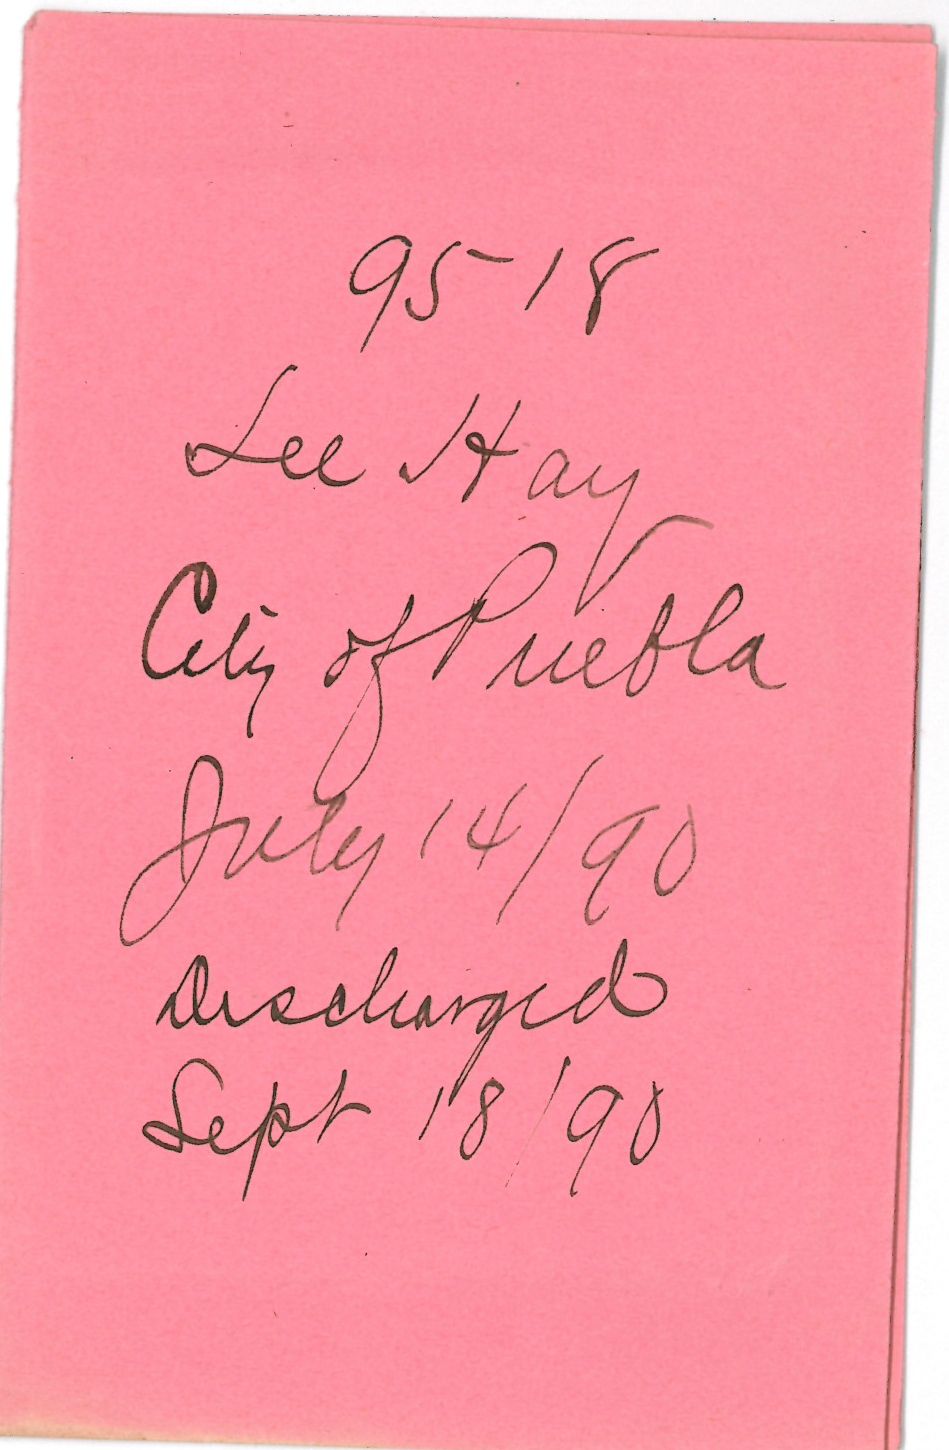 9518
Lee Hay
City of Puebla
July 14/90
Discharged
Sept 18/90